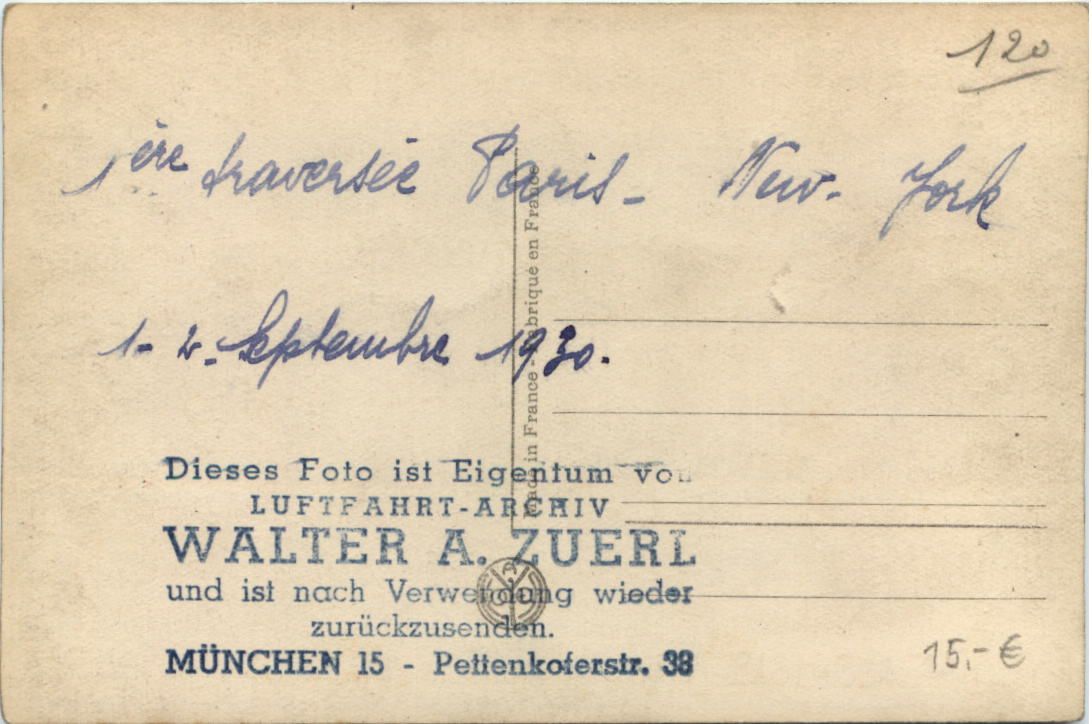 120
1ère traversée Paris - New-York
1-2 Septembre 1930.
Made in France - Fabriqué en France
Dieses Foto ist Eigentum von
LUFTFAHRT-ARCHIV
WALTER A. ZUERL
und ist nach Verwendung wieder
zurückzusenden.
MÜNCHEN 15 - Pettenkoferstr.
15,- €